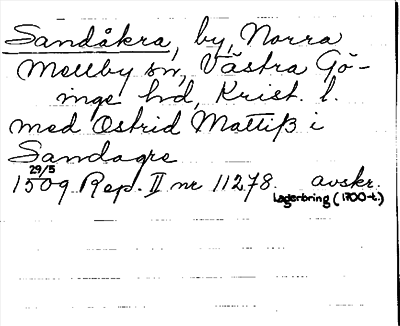 Sandåkra, by, Norra
Mellby sn, Västra Gö-
inge hd, Krist. l.
med Østrid Mattiß i
Sandagre
29/5
1509 Rep. II nr 11278. avskr.
Lagerbring (1700-t.)